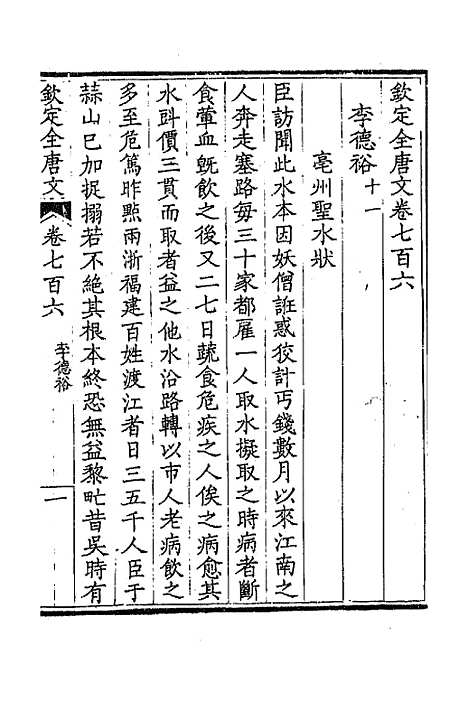 欽定全唐文卷七百六
李德裕十一
亳州聖水狀
臣訪聞此水本因妖僧誑惑狡計丐錢數月以來江南之
人奔走塞路每三十家都雇一人取水擬取之時病者斷
食葷血既飲之後又二七日蔬食危疾之人俟之病愈其
水㪷價三貫而取者益之他水沿路轉以市人老病飲之
多至危篤昨㸃兩浙福建百姓渡江者日三五千人臣于
蒜山已加捉搦若不絶其根本終恐無益黎甿昔吳時有
欽定全唐文
卷七百六
李德裕
一